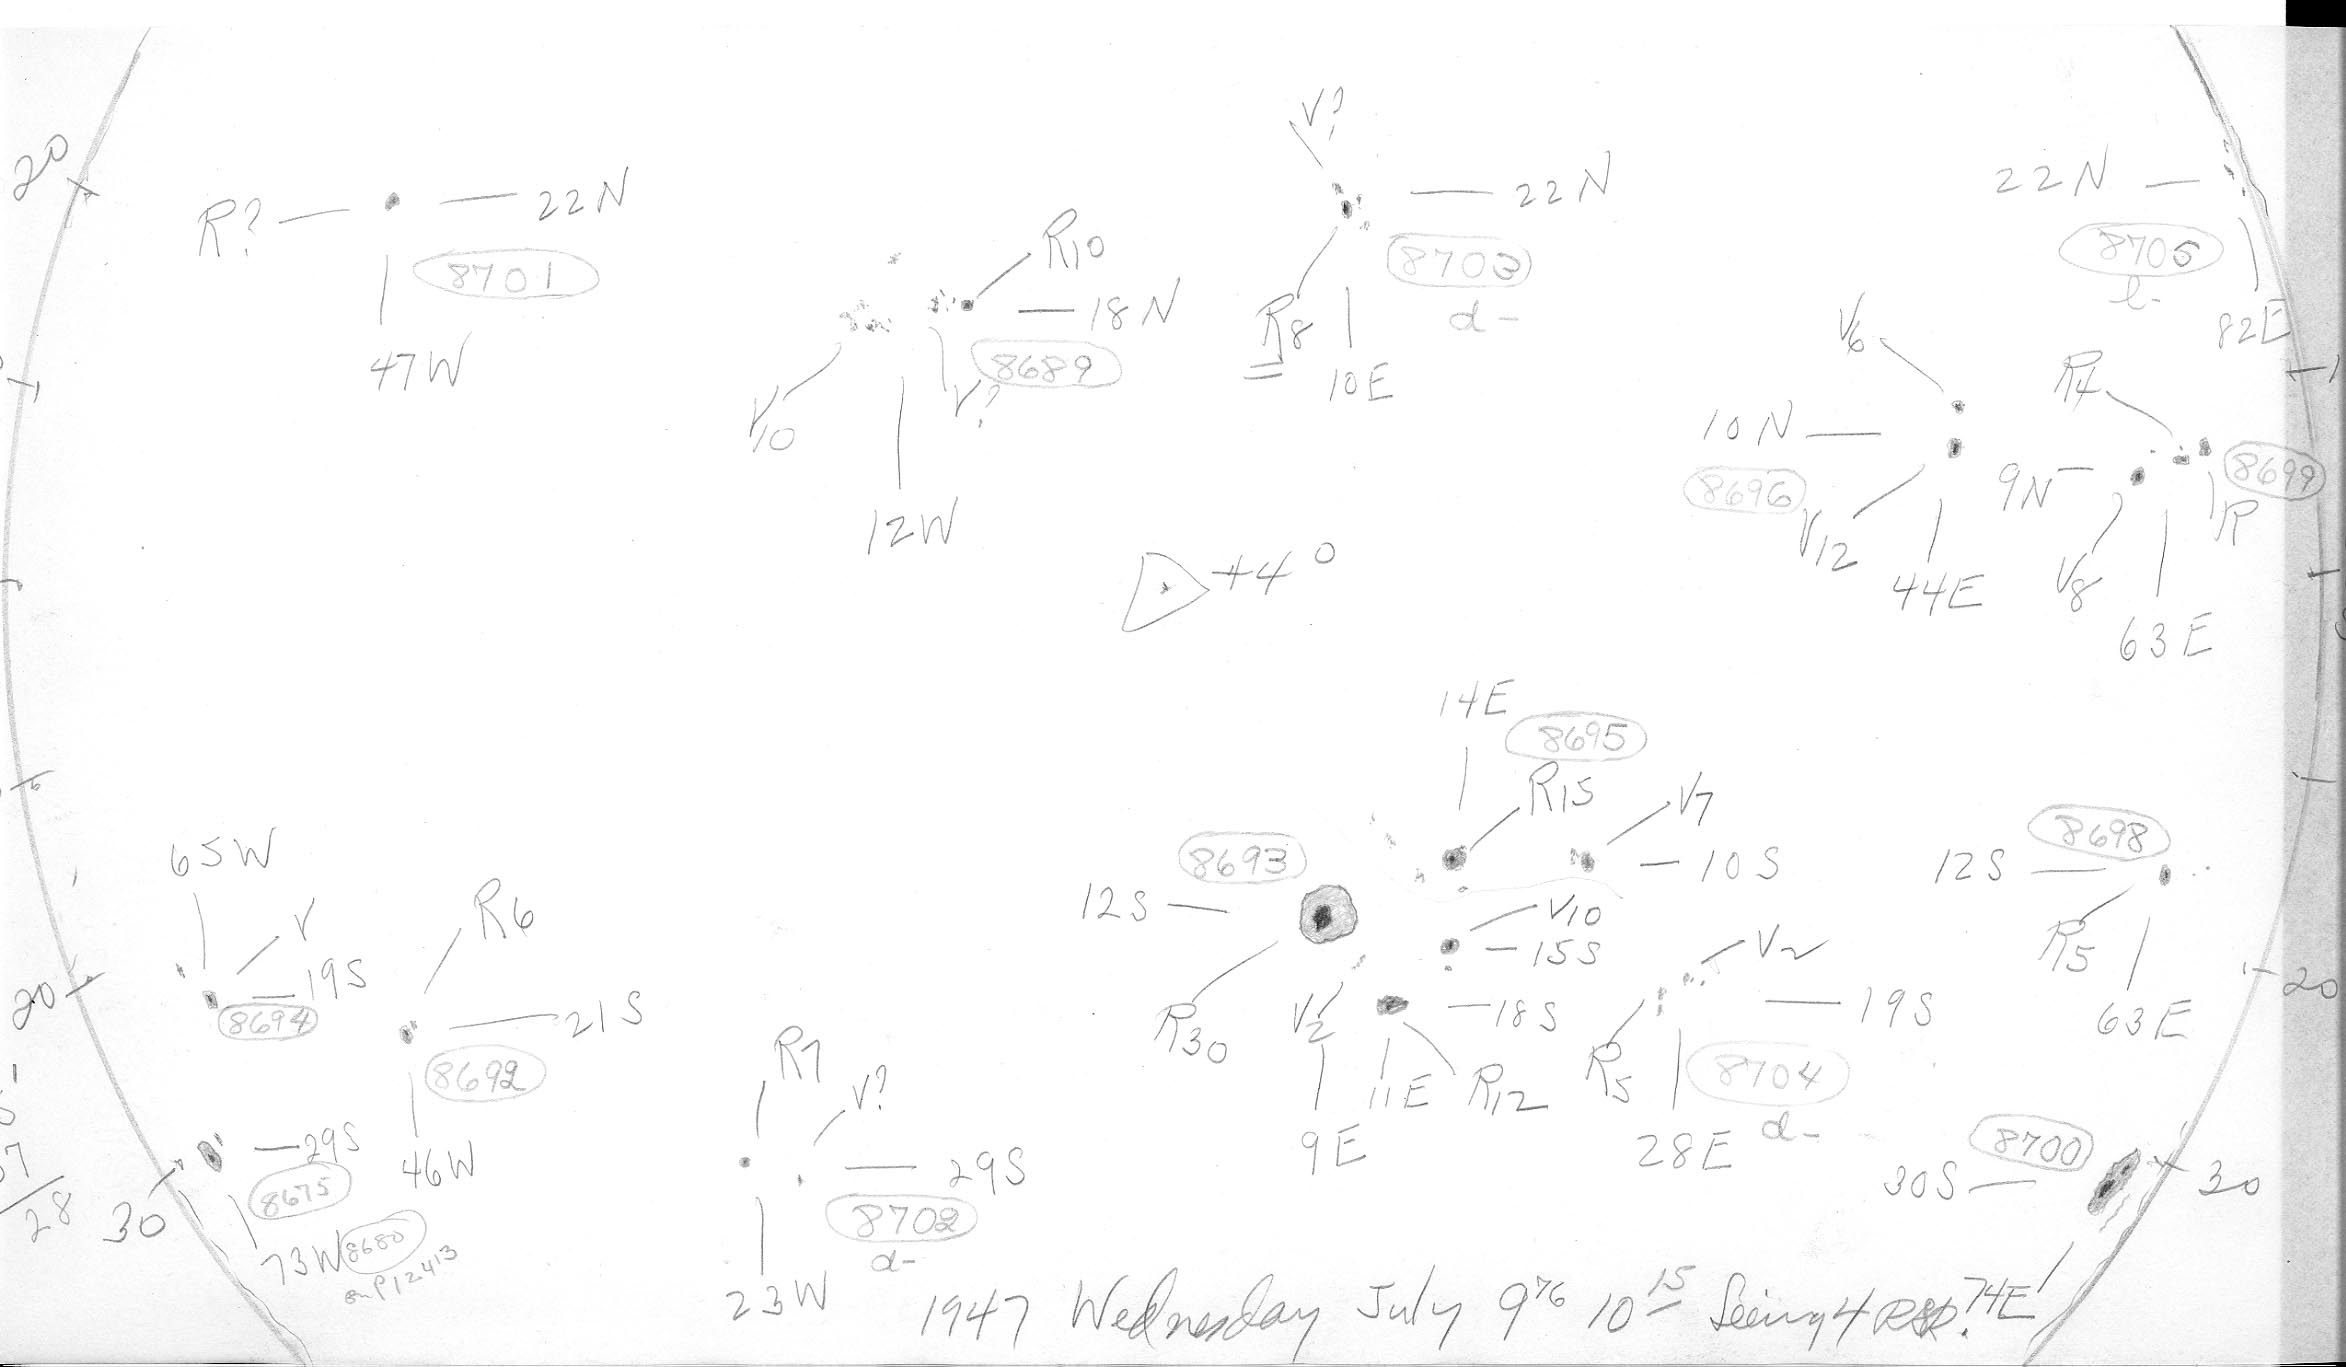 20
R?
22N
8701
47W
R10
18N
8689
V10
V?
12W
V?
22N
8703
d-
R8
10E
22N
8705
l-
82E
V6
10N
8696
V12
44E
R4
9N
8699
R
V8
63E
+4°
14E
8695
R15
V7
10S
8693
12S
R30
V10
15S
V2
18S
9E
11E
R12
V2
19S
R5
8704
d-
28E
8698
12S
R5
63E
20
65W
V
19S
8694
20
R6
21S
8692
46W
29S
8675
30
28
73W 8680
on P12413
R7
V?
29S
8702
d-
23W
8700
30S
30
74E
1947 Wednesday July 9 76 10 15 Seeing 4